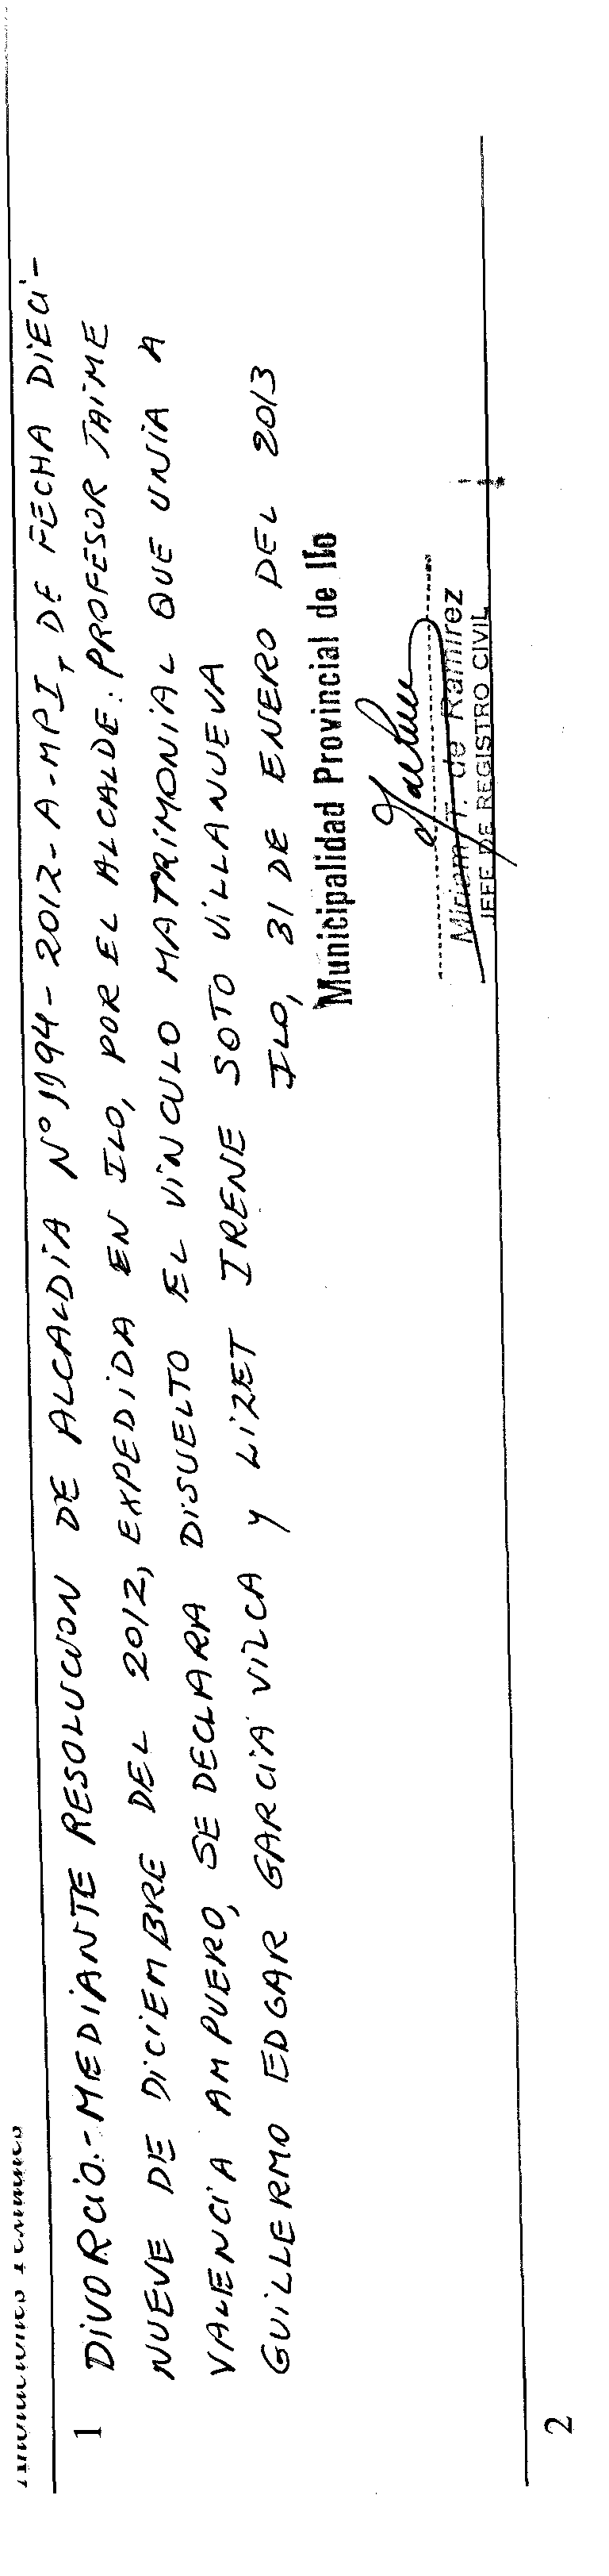 1 DIVORCIO.- MEDIANTE RESOLUCION DE ALCALDIA N° 1194-2012-A-MPI, DE FECHA DIECI-
NUEVE DE DICIEMBRE DEL 2012, EXPEDIDA EN ILO, POR EL ALCALDE: PROFESOR JAIME
VALENCIA AMPUERO, SE DECLARA DISUELTO EL VINCULO MATRIMONIAL QUE UNIA A
GUILLERMO EDGAR GARCIA VILCA Y LIZET IRENE SOTO VILLANUEVA
ILO, 31 DE ENERO DEL 2013
Municipalidad Provincial de Ilo
Miriam T. de Ramirez
JEFE DE REGISTRO CIVIL
2